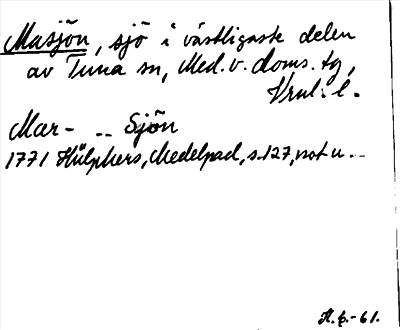 Masjön, sjö i västligaste delen
av Tuna sn, Med. v. doms. tg,
Vrnl. l.
Mar- -- Sjön
1771 Hülphers, Medelpad, s. 127, not u --
H. G. -61.